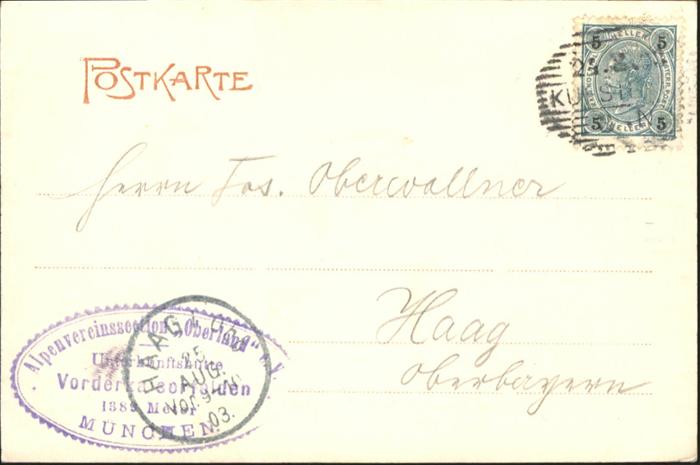 POSTKARTE
5 HELLER 5
5 HELLER 5
KU
Herrn Jos. Oberwallner
Haag
Oberbayern
Alpenvereinssection „Oberland" e.V.
Unterkunftshütte
Vorderkaiserfelden
1389 Meter
MÜNCHEN.
HAAG i. OBB.
25
AUG.
03.